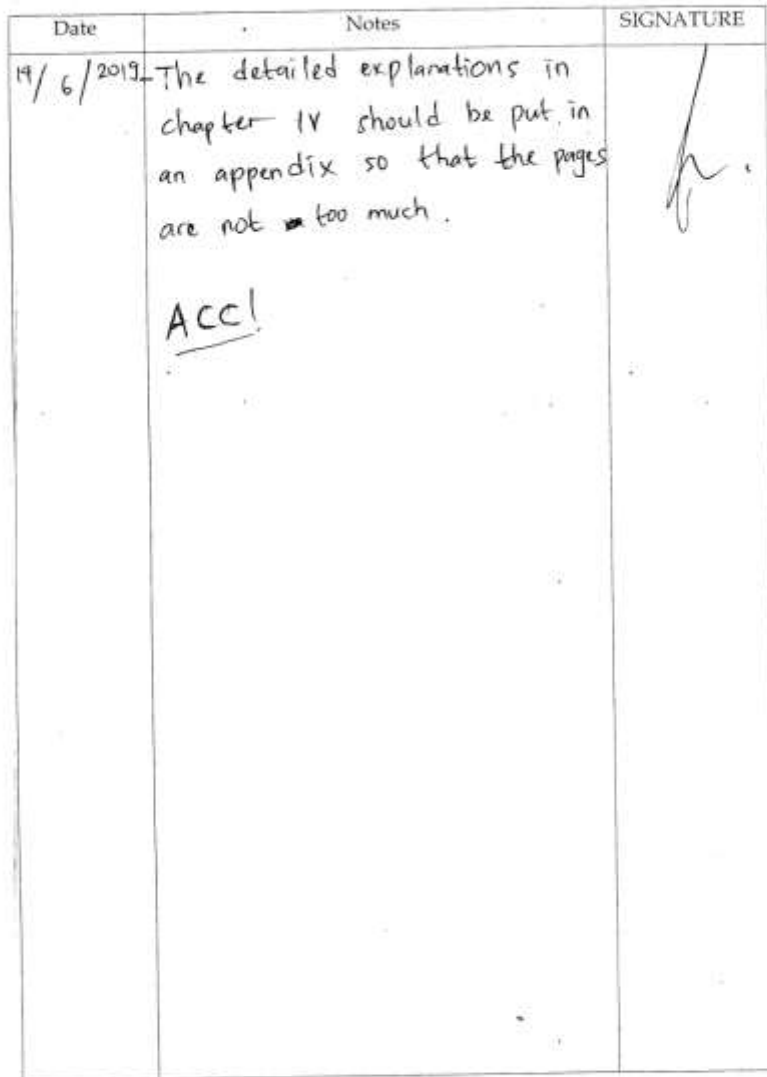 Date Notes SIGNATURE
19/6/2019 - The detailed explanations in
chapter IV should be put in
an appendix so that the pages
are not too much.
ACC!